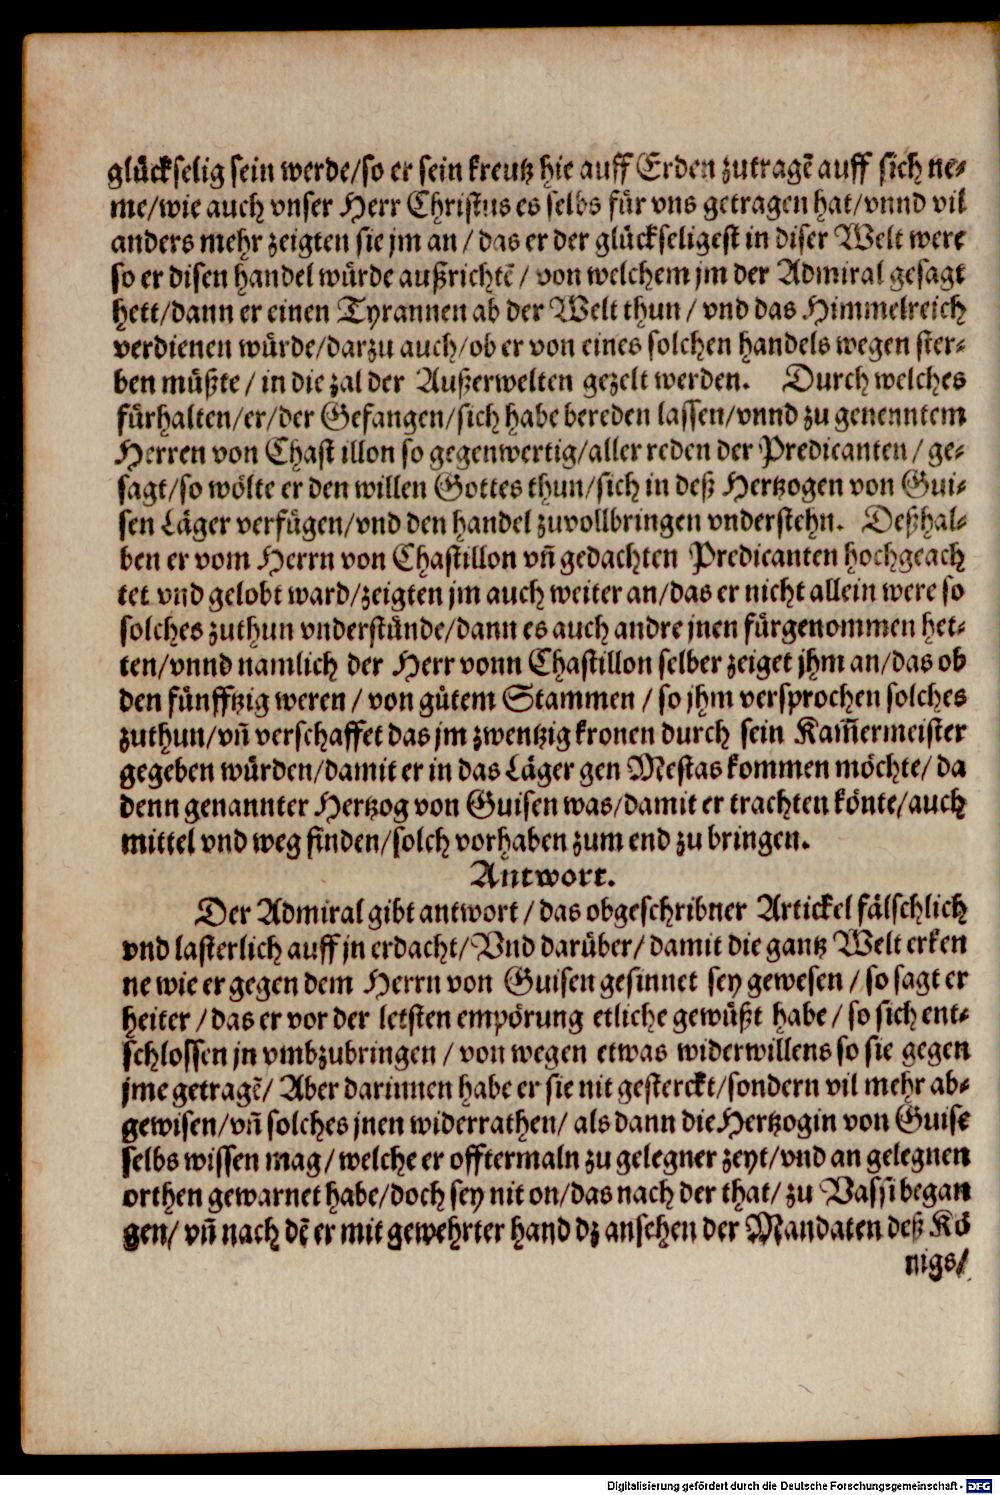 glückselig sein werde/so er sein kreutz hie auff Erden zutragē auff sich ne-
me/wie auch vnser Herr Christus es selbs für vns getragen hat/vnnd vil
anders mehr zeigten sie jm an / das er der glückseligest in diser Welt were
so er disen handel würde außrichtē / von welchem jm der Admiral gesagt
hett/dann er einen Tyrannen ab der Welt thun / vnd das Himmelreich
verdienen würde/darzu auch/ob er von eines solchen handels wegen ster-
ben müßte / in die zal der Außerwelten gezelt werden. Durch welches
fürhalten/er/der Gefangen/sich habe bereden lassen/vnnd zu genenntem
Herren von Chast illon so gegenwertig/aller reden der Predicanten / ge-
sagt/so wölte er den willen Gottes thun/sich in deß Hertzogen von Gui-
sen Läger verfügen/vnd den handel zuvollbringen vnderstehn. Deßhal-
ben er vom Herrn von Chastillon vñ gedachten Predicanten hochgeach
tet vnd gelobt ward/zeigten jm auch weiter an/das er nicht allein were so
solches zuthun vnderstünde/dann es auch andre jnen fürgenommen het-
ten/vnnd namlich der Herr vonn Chastillon selber zeiget jhm an/das ob
den fünfftzig weren / von gůtem Stammen / so jhm versprochen solches
zuthun/vñ verschaffet das jm zwentzig kronen durch sein Kam̃ermeister
gegeben würden/damit er in das Läger gen Mestas kommen möchte/ da
denn genannter Hertzog von Guisen was/damit er trachten könte/auch
mittel vnd weg finden/solch vorhaben zum end zu bringen.
Antwort.
Der Admiral gibt antwort / das obgeschribner Artickel fälschlich
vnd lasterlich auff jn erdacht/ Vnd darüber/ damit die gantz Welt erken
ne wie er gegen dem Herrn von Guisen gesinnet sey gewesen / so sagt er
heiter / das er vor der letsten empörung etliche gewüßt habe / so sich ent-
schlossen jn vmbzubringen / von wegen etwas widerwillens so sie gegen
jme getragē/ Aber darinnen habe er sie nit gesterckt/sondern vil mehr ab-
gewisen/vñ solches jnen widerrathen/ als dann die Hertzogin von Guise
selbs wissen mag/welche er offtermaln zu gelegner zeyt/vnd an gelegnen
orthen gewarnet habe/doch sey nit on/das nach der that/ zu Vassi began
gen/ vñ nach dē er mit gewehrter hand dz ansehen der Mandaten deß Kö
nigs/
Digitalisierung gefördert durch die Deutsche Forschungsgemeinschaft - DFG